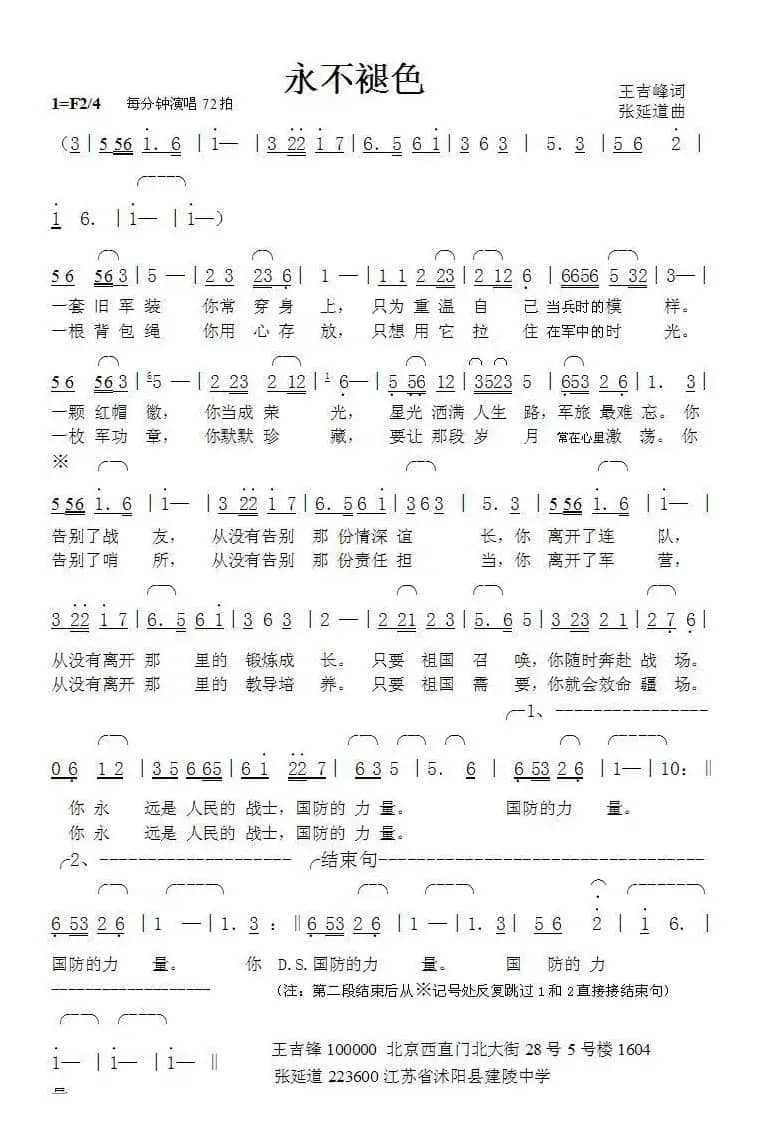 永不褪色
1=F2/4 每分钟演唱72拍
王吉峰词
张延道曲
(3|5 56 1. 6 |1—|3 22 1 7|6. 5 6 1|3 6 3 | 5. 3 |5 6 2 |
1 6. |1—|1—)
5 6 56 3|5 —|2 3 23 6| 1 —|1 1 2 23|2 12 6|6656 5 32|3—|
一套 旧 军 装 你常 穿 身 上, 只为 重温 自 己 当兵时的模 样。
一根 背 包 绳 你用 心 存 放, 只想 用 它 拉 住 在军中的时 光。
5 6 56 3|6 5 —|2 23 2 12|1 6—|5 56 12|3523 5 |653 2 6|1. 3|
一颗 红帽 徽, 你当成 荣 光, 星光 洒满 人生 路,军旅 最难 忘。你
一枚 军功 章, 你默默 珍 藏, 要让 那段 岁 月 常在心里激 荡。你
※
5 56 1. 6 |1—|3 22 1 7|6. 5 61|363| 5. 3|5 56 1. 6|1—|
告别了战 友, 从没有告别 那 份情深 谊 长,你 离开了连 队,
告别了哨 所, 从没有告别 那 份责任 担 当,你 离开了军 营,
3 22 1 7|6. 5 6 1|3 6 3|2 —|2 21 2 3|5. 6 5|3 23 2 1|2 7 6|
从没有离开 那 里的 锻炼成 长。 只要 祖国 召 唤,你随时奔赴 战 场。
从没有离开 那 里的 教导培 养。 只要 祖国 需 要,你就会效命 疆 场。
1、
0 6 1 2 |3 5 6 65|6 1 22 7| 6 3 5 |5. 6 |6 53 2 6|1—|10:‖
你 永 远是 人民的 战士,国防的 力 量。 国防的力 量。
你 永 远是 人民的 战士,国防的 力 量。
2、 结束句
6 53 2 6|1 —|1. 3 : ‖6 53 2 6|1 —|1. 3| 5 6 2 | 1 6. |
国防的力 量。 你 D.S.国防的力 量。 国 防的 力
(注:第二段结束后从※记号处反复跳过1和2直接接结束句)
1— |1— |1— ‖
量
王吉锋 100000 北京西直门北大街28号5号楼1604
张延道 223600江苏省沭阳县建陵中学